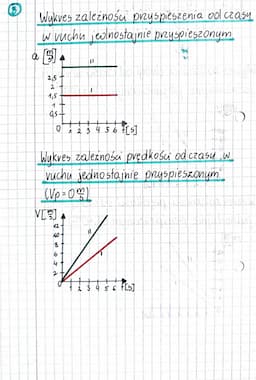 5
Wykres zależności przyspieszenia od czasu
w ruchu jednostajnie przyspieszonym
a [m/s²]
II
2,5
2
1,5
I
1
0,5
0 1 2 3 4 5 6 t[s]
Wykres zależności prędkości od czasu w
ruchu jednostajnie przyspieszonym
(Vp=0 m/s)
V[m/s]
12
10
II
8
6
I
4
2
0 1 2 3 4 5 6 t[s]